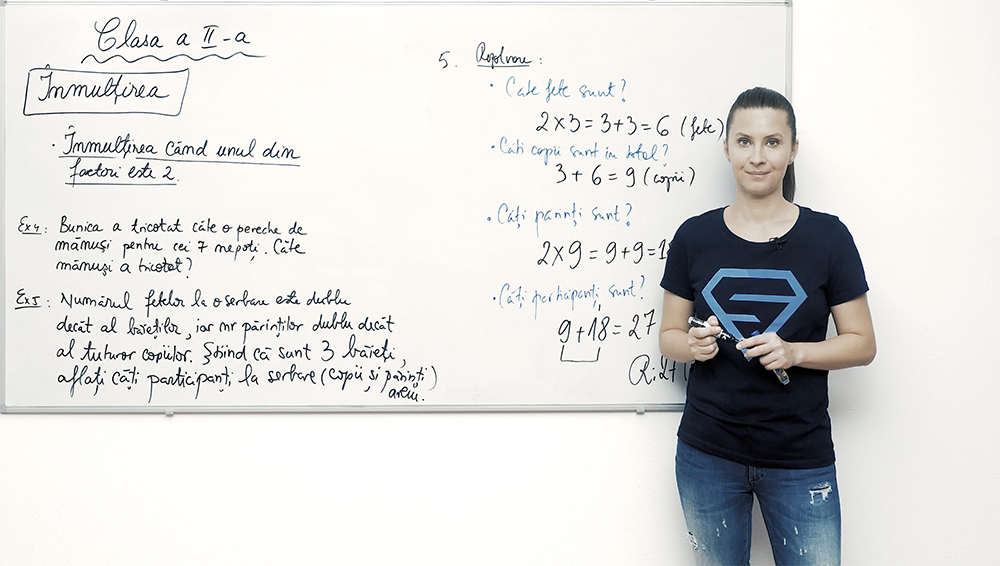 Clasa a II-a
Înmulțirea
· Înmulțirea când unul din
factori este 2.
Ex4: Bunica a tricotat câte o pereche de
mănuși pentru cei 7 nepoți. Câte
mănuși a tricotat?
Ex5: Numărul fetelor la o serbare este dublu
decât al băieților, iar nr părinților dublu decât
al tuturor copiilor. Știind că sunt 3 băieți,
aflați câți participanți la serbare (copii și părinți)
avem.
5. Rezolvare:
· Câte fete sunt?
2 x 3 = 3 + 3 = 6 (fete)
· Câți copii sunt in total?
3 + 6 = 9 (copii)
· Câți părinți sunt?
2 x 9 = 9 + 9 = 1
· Câți participanți sunt?
9 + 18 = 27
R: 27 (